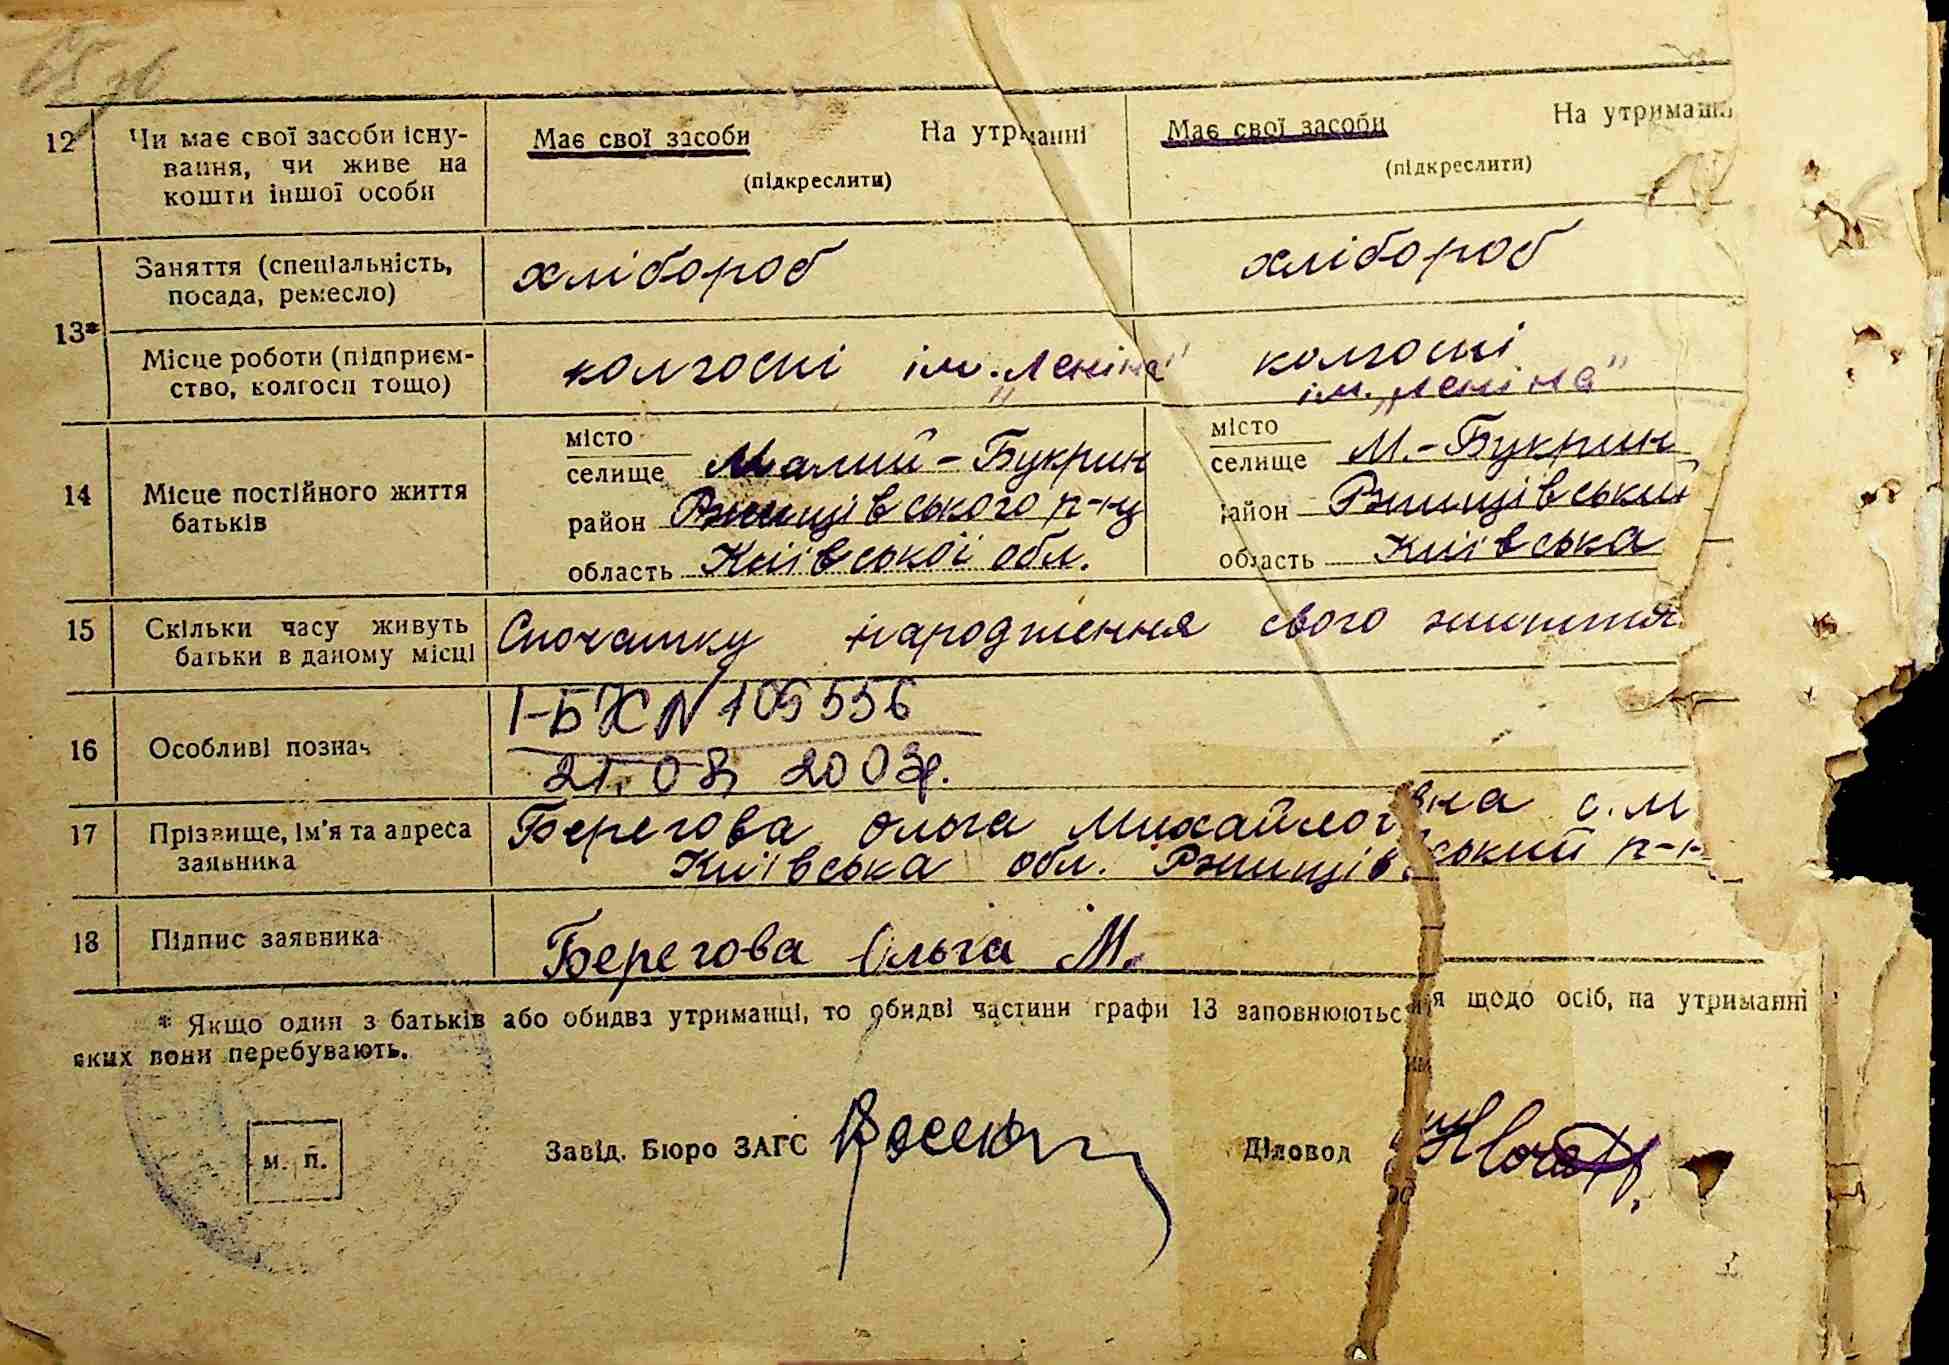 65 зв
12 Чи має свої засоби існу- Має свої засоби На утриманні Має свої засоби На утриманн
вання, чи живе на (підкреслити) (підкреслити)
кошти іншої особи
13* Заняття (спеціальність, хлібороб хлібороб
посада, ремесло)
Місце роботи (підприєм- колгоспі ім. „Леніна" колгоспі
ство, колгосп тощо) ім. „Леніна"
місто місто
селище Малий-Букрин селище М.-Букрин
14 Місце постійного життя район Ржищівського р-ну район Ржищівський
батьків область Київської обл. область Київська
15 Скільки часу живуть Спочатку народження свого життя
батьки в даному місці
16 Особливі познач І-БК N 105556
21.08 2003р.
17 Прізвище, ім'я та адреса Берегова Ольга Михайлівна с. М
заявника Київська обл. Ржищівський р-н
18 Підпис заявника Берегова Ольга М.
* Якщо один з батьків або обидва утриманці, то обидві частини графи 13 заповнюються щодо осіб, на утриманні
яких вони перебувають.
м. п. Завід. Бюро ЗАГС Діловод